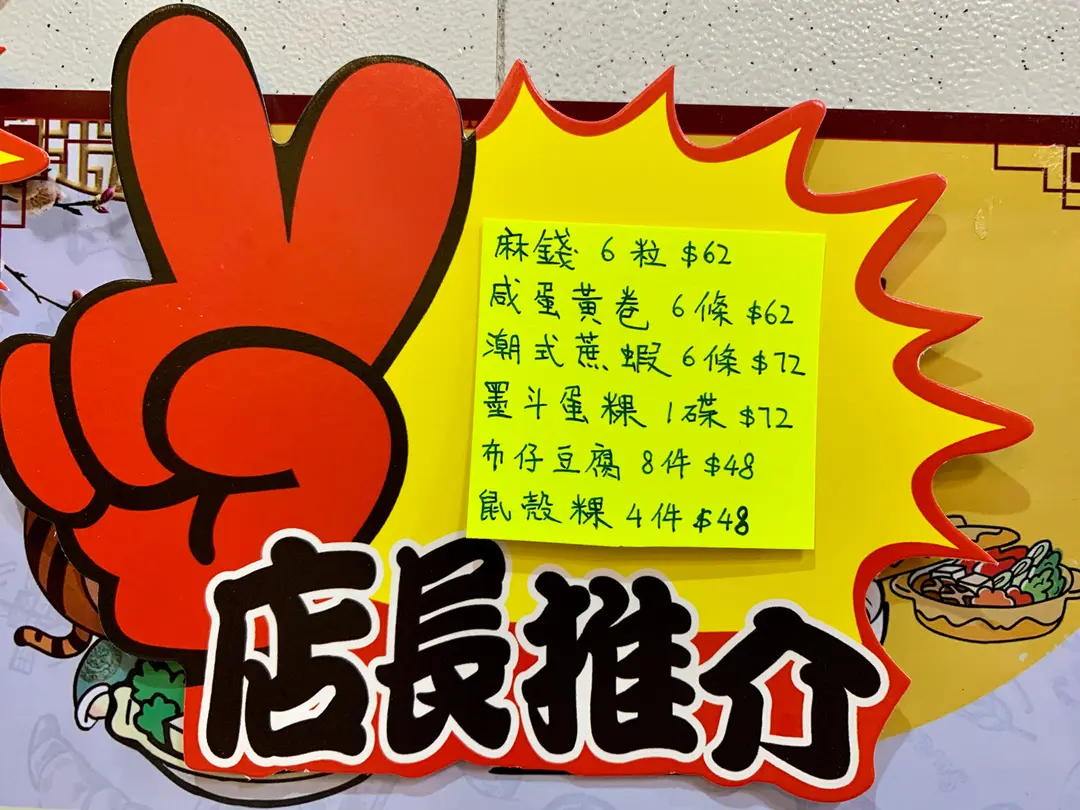 麻錢 6粒 $62
咸蛋黃卷 6條 $62
潮式蔗蝦 6條 $72
墨斗蛋粿 1碟 $72
布仔豆腐 8件 $48
鼠殼粿 4件 $48
店長推介